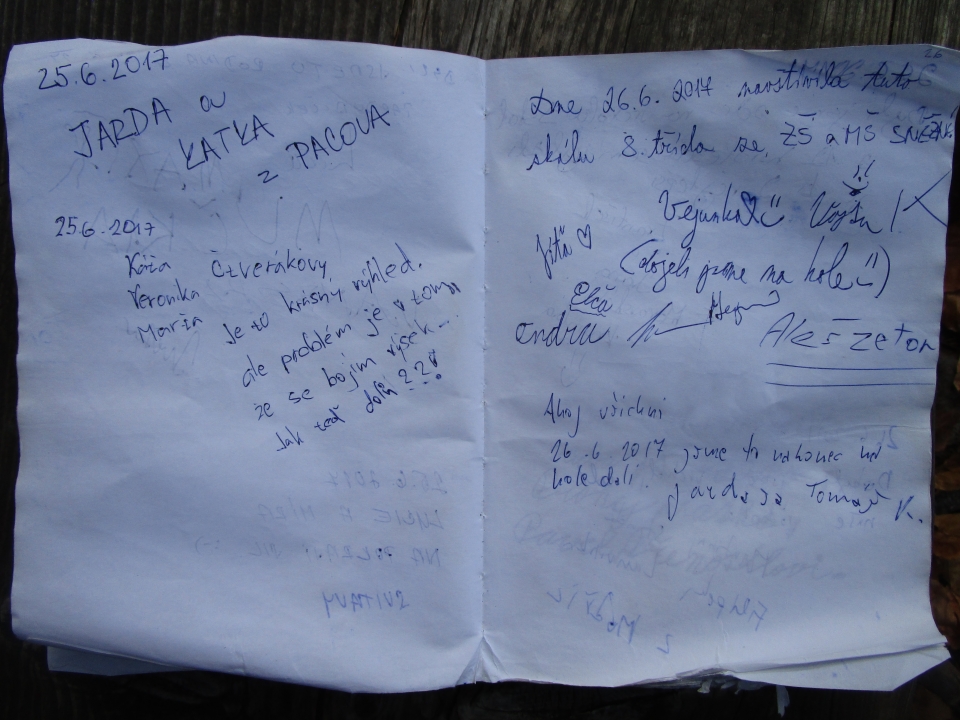 25.6.2017
JARDA a
KATKA
z PACOVA
25.6.2017
Káža Čtverákovy
Veronika
Marža
Je to krásný výhled.
ale problém je v tom,
že se bojím výšek...
Jak teď dolů???
26
Dne 26.6. 2017 navštívila tuto
skálu 8. třída ze ZŠ a MŠ SNĚŽNÉ
Vejunka Vojta
Jíťa
(dojeli jsme na kole)
Elča
Ondra
Aleš Zeton
Ahoj všichni
26.6.2017 jsme to nakonec na
kole dali.
Jarda Tomáš K.
25.6.2017
LUCIE
NA
SVITAVY